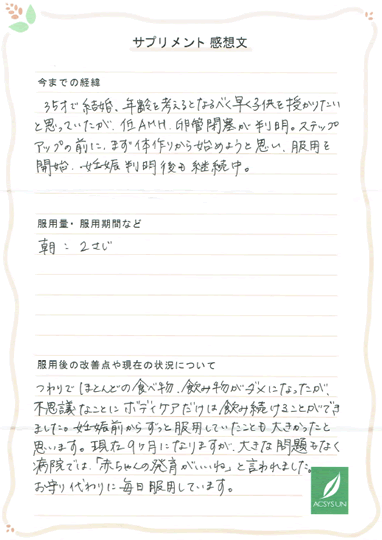 サプリメント 感想文
今までの経緯
35才で結婚、年齢を考えるとなるべく早く子供を授かりたい
と思っていたが、低AMH、卵管閉塞が判明。ステップ
アップの前に、まず体作りから始めようと思い、服用を
開始。妊娠判明後も継続中。
服用量・服用期間など
朝：2さじ
服用後の改善点や現在の状況について
つわりでほとんどの食べ物、飲み物がダメになったが、
不思議なことにボディケアだけは飲み続けることができ
ました。妊娠前からずっと服用していたことも大きかったと
思います。現在9ヶ月になりますが、大きな問題もなく
病院では、「赤ちゃんの発育がいいね」と言われました。
お守り代わりに毎日服用しています。
ACSYSUN